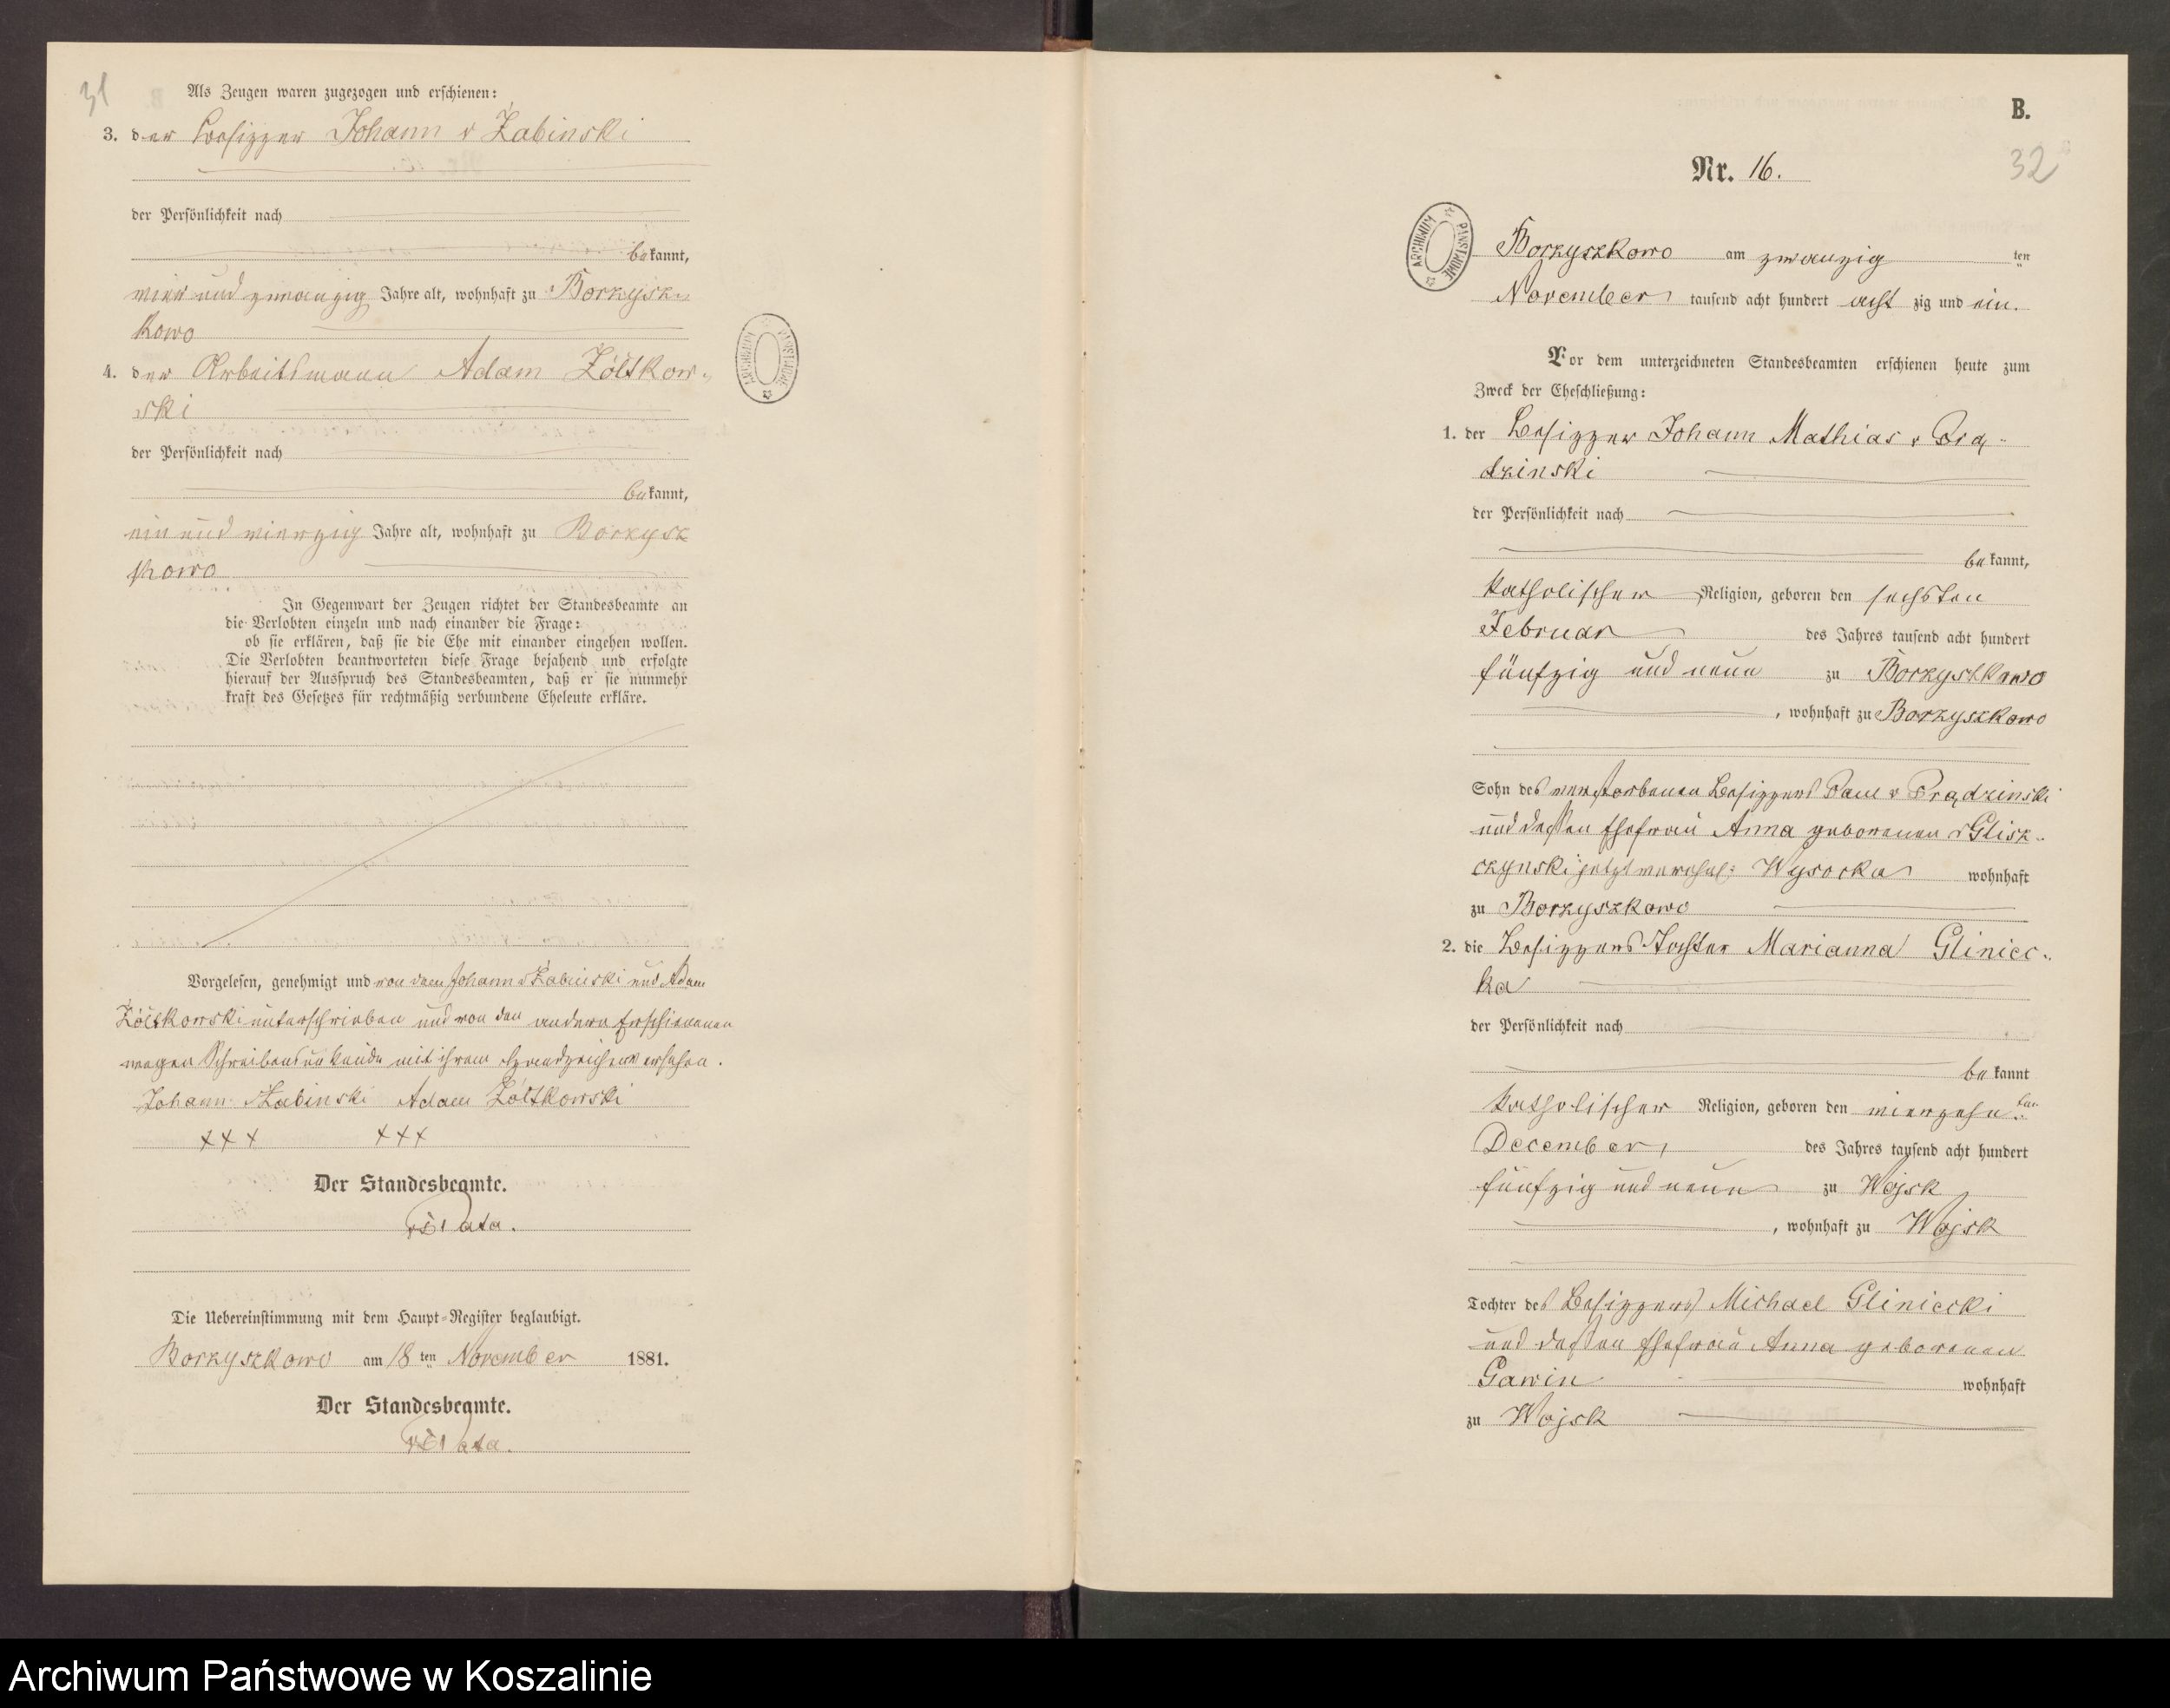 31
Als Zeugen waren zugezogen und erschienen:
3. der Besitzer Johann v Żabinski
der Persönlichkeit nach
bekannt,
vier und zwanzig Jahre alt, wohnhaft zu Borzysz-
kowo
4. der Arbeitsmann Adam Żółtkow-
ski
der Persönlichkeit nach
bekannt,
ein und vierzig Jahre alt, wohnhaft zu Borzysz
kowo
In Gegenwart der Zeugen richtet der Standesbeamte an
die Verlobten einzeln und nach einander die Frage:
ob sie erklären, daß sie die Ehe mit einander eingehen wollen.
Die Verlobten beantworteten diese Frage bejahend und erfolgte
hierauf der Ausspruch des Standesbeamten, daß er sie nunmehr
kraft des Gesetzes für rechtmäßig verbundene Eheleute erkläre.
Vorgelesen, genehmigt und von dem Johann v Żabinski und Adam
Żółtkowski unterschrieben und von den andern Erschienenen
wegen Schreibensunkunde mit ihrem Handzeichen versehen.
Johann v Żabinski Adam Żółtkowski
+++ +++
Der Standesbeamte.
Die Uebereinstimmung mit dem Haupt-Register beglaubigt.
Borzyszkowo am 18 ten November 1881.
Der Standesbeamte.
B.
32
Nr. 16.
ARCHIWUM PAŃSTWOWE
Borzyszkowo am zwanzig ten
November tausend acht hundert acht zig und ein.
Vor dem unterzeichneten Standesbeamten erschienen heute zum
Zweck der Eheschließung:
1. der Besitzer Johann Mathias v Prą-
dzinski
der Persönlichkeit nach
bekannt,
katholischer Religion, geboren den sechsten
Februar des Jahres tausend acht hundert
fünfzig und neun zu Borzyszkowo
, wohnhaft zu Borzyszkowo
Sohn des verstorbenen Besitzers Paul v Prądzinski
und dessen Ehefrau Anna geborenen v Glisz-
czynski jetzt verehel: Wysocka wohnhaft
zu Borzyszkowo
2. die Besitzers Tochter Marianna Gliniec-
ka
der Persönlichkeit nach
bekannt
katholischer Religion, geboren den vierzehnten
December des Jahres tausend acht hundert
fünfzig und neun zu Wojsk
, wohnhaft zu Wojsk
Tochter des Besitzers Michael Gliniecki
und dessen Ehefrau Anna geborenen
Gawin wohnhaft
zu Wojsk
ARCHIWUM PAŃSTWOWE
Archiwum Państwowe w Koszalinie